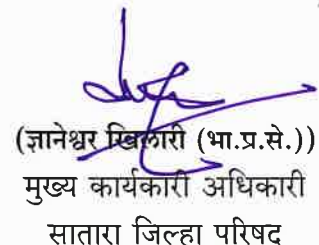 (ज्ञानेश्वर खिलारी (भा.प्र.से.))
मुख्य कार्यकारी अधिकारी
सातारा जिल्हा परिषद